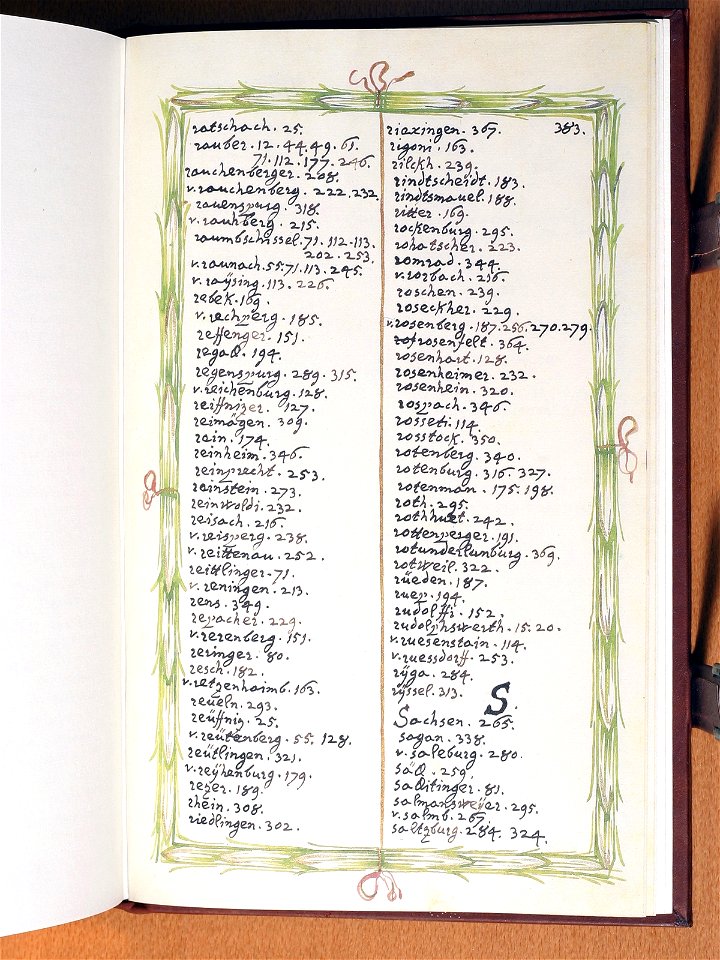 ratschach. 25.
rauber. 12. 44. 49. 61.
71. 112. 177. 246.
rauchenberger. 208.
v. rauchenberg. 222. 232.
rauenspurg. 318.
v. rauhberg. 215.
raumbschissel. 71. 112. 113.
202. 253.
v. raunach. 55. 71. 113. 245.
v. raÿsing. 113. 226.
rebek. 169.
v. rechperg. 185.
reffenger. 151.
194.
regenspurg. 289. 315.
v. reichenburg. 128.
reiffnizer. 127.
reimägen. 309.
rain. 174.
reinheim. 346.
reinprecht. 253.
rainstein. 273.
reinwoldi. 232.
reisach. 216.
v. reisperg. 238.
v. reittenau. 252.
reittlinger. 71.
v. reningen. 213.
rens. 349.
repacher. 229.
v. rerenberg. 151.
reringer. 80.
resch. 182.
v. retzenhaimb. 163.
reueln. 293.
reüffnig. 25.
v. reütenberg. 55. 128.
reütlingen. 321.
v. reÿhenburg. 179.
rezer. 189.
rhein. 308.
riedlingen. 302.
383.
riaxingen. 367.
rigoni. 163.
rilckh. 239.
rindtscheidt. 183.
rindtsmauel. 188.
ritter. 169.
rockenburg. 295.
rohatscher. 223.
romrad. 344.
v. rorbach. 216.
roschen. 239.
roseckher. 229.
v. rosenberg. 187. 256. 270. 279.
rosenfelt. 364.
rosenhart. 128.
rosenheimer. 232.
rosenhein. 320.
rospach. 346.
rosseti. 114.
rosstock. 350.
rotenberg. 340.
rotenburg. 316. 327.
rotenman. 175. 198.
roth. 295.
rothhuet. 242.
rottenperger. 191.
rotunderlunburg. 369.
rotweil. 322.
rüeden. 187.
ruep. 194.
rudolffi. 152.
rudolphswerth. 15. 20.
v. ruesenstain. 114.
v. ruessdorff. 253.
rÿga. 284.
rÿssel. 313.
S.
Sachsen. 265.
sagan. 338.
v. saleburg. 280.
259.
81.
salmansweÿer. 295.
v. salmb. 267.
saltzburg. 284. 324.